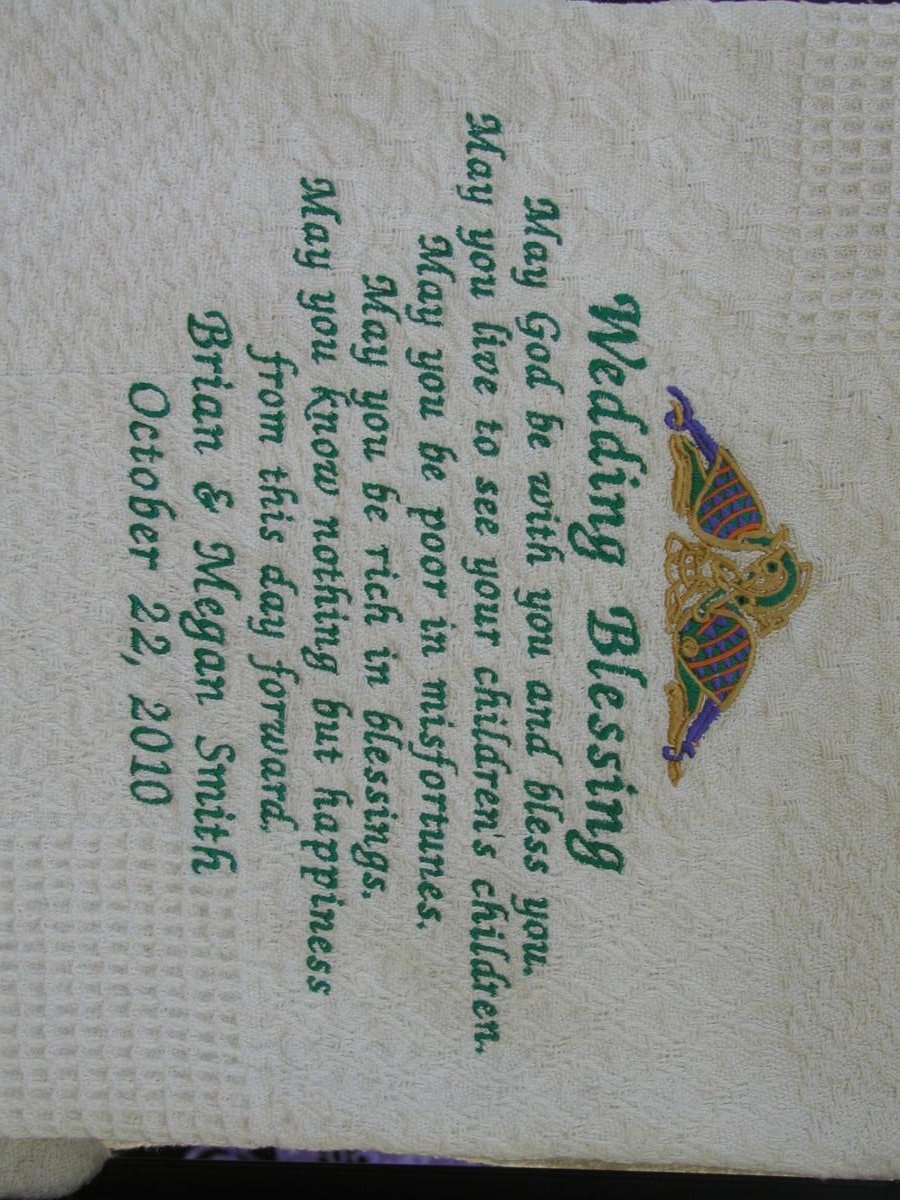 Wedding Blessing
May God be with you and bless you.
May you live to see your children's children.
May you be poor in misfortunes.
May you be rich in blessings.
May you know nothing but happiness
from this day forward.
Brian & Megan Smith
October 22, 2010